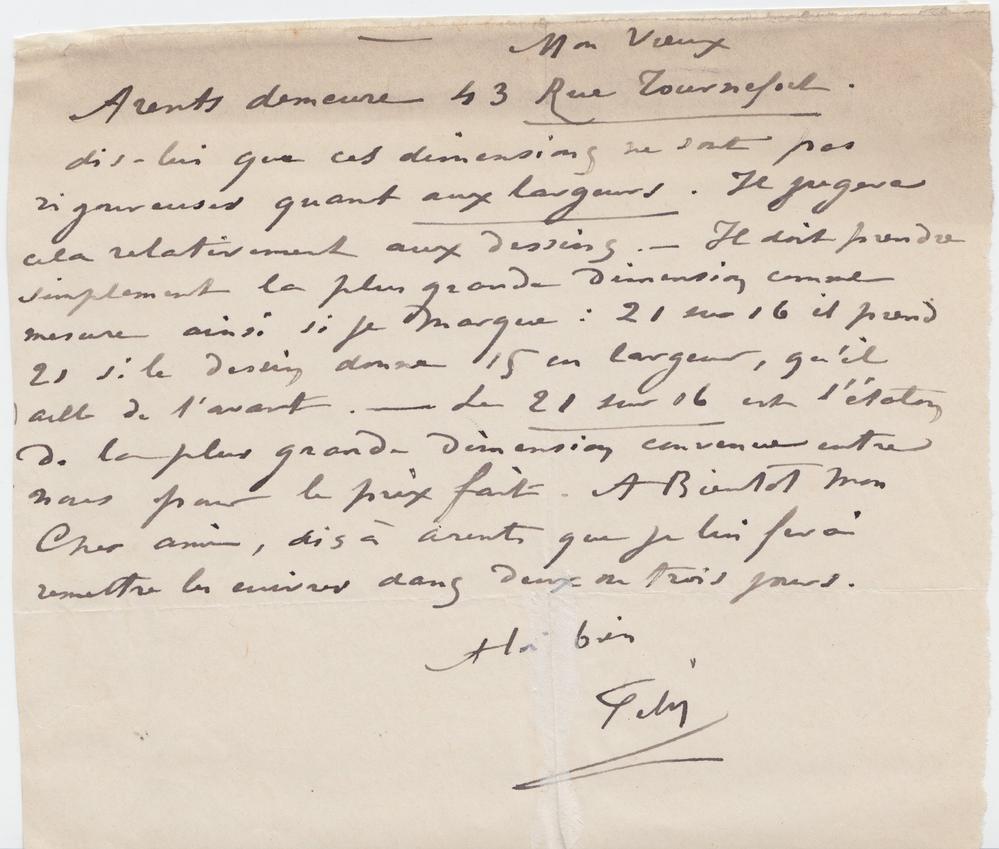 Mon Vieux
Arents demeure 43 Rue Tournefort.
dis-lui que ces dimensions ne sont pas
rigoureuses quant aux largeurs. Il jugera
cela relativement aux dessins. — Il doit prendre
simplement la plus grande dimension comme
mesure ainsi si je marque : 21 sur 16 il prend
21 si le dessin donne 15 en largeur, qu'il
aille de l'avant. — Le 21 sur 16 est l'étalon
de la plus grande dimension convenue entre
nous pour le prix fait. A Bientot Mon
Cher amie, dis à arents que je lui ferai
remettre les cuivres dans deux ou trois jours.
A toi bien